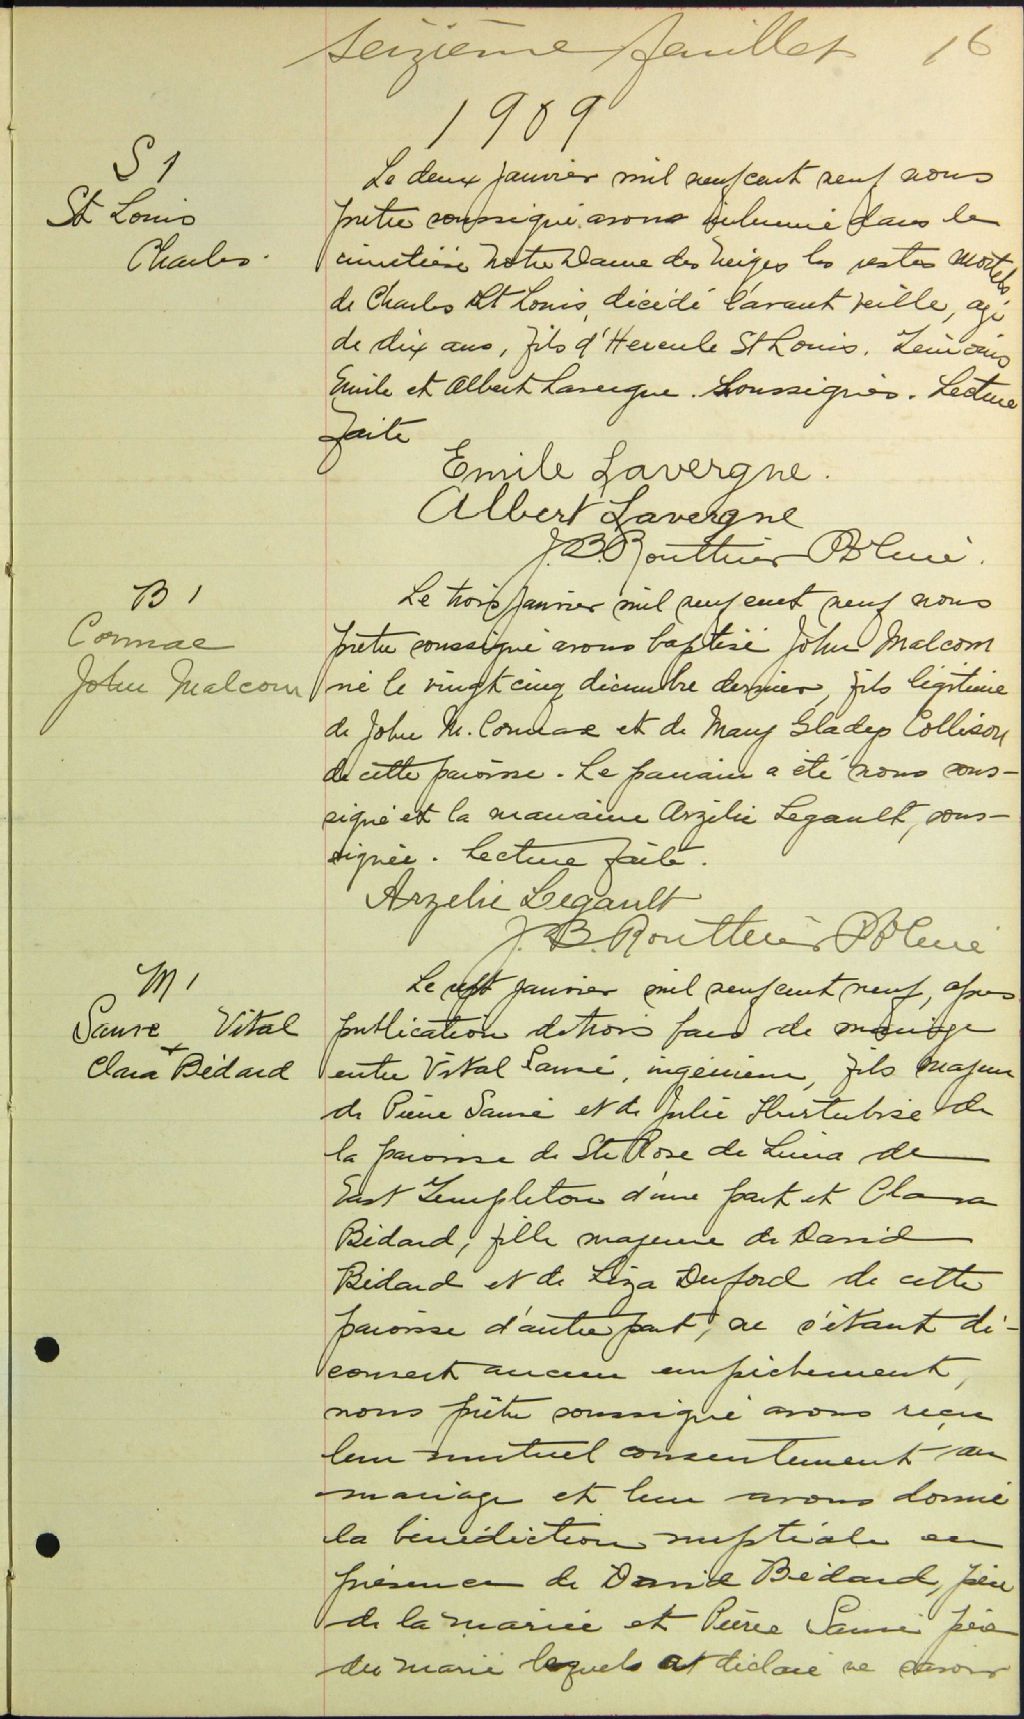 seizième feuillet 16
1909
S 1
St Louis
Charles.
Le deux janvier mil neuf cent neuf nous
prêtre soussigné avons inhumé dans le
cimetière Notre Dame des Neiges les restes mortels
de Charles St Louis, décédé l'avant veille, agé
de dix ans, fils d'Hercule St Louis. Témoins
Emile et Albert Lavergne. Soussignés. Lecture
faite
Emile Lavergne.
Albert Lavergne
J. B. Routhier Ptre Curé.
B 1
Connae
John Malcom
Le trois janvier mil neuf cent neuf nous
prêtre soussigné avons baptisé John Malcom
né le vingt cinq décembre dernier, fils légitime
de John M. Connae et de Mary Gladys Collison
de cette paroisse. Le parrain a été nous sous-
signé et la marraine Arzélie Legault, sous-
signée. Lecture faite.
Arzelie Legault
J. B. Routhier Ptre Curé
M 1
Sauvé Vital
+
Clara Bédard
Le sept janvier mil neuf cent neuf, après
publication de trois bans de mariage
entre Vital Sauvé, ingénieur, fils majeur
de Pierre Sauvé et de Julie Hurtubise de
la paroisse de Ste Rose de Lima de
East Templeton d'une part et Clara
Bédard, fille majeure de David
Bédard et de Liza Duford de cette
paroisse d'autre part, ne s'étant dé-
couvert aucun empêchement,
nous prêtre soussigné avons reçu
leur mutuel consentement au
mariage et leur avons donné
la bénédiction nuptiale en
présence de David Bédard, père
de la mariée et Pierre Sauvé père
du marié lesquels ont déclaré ne savoir